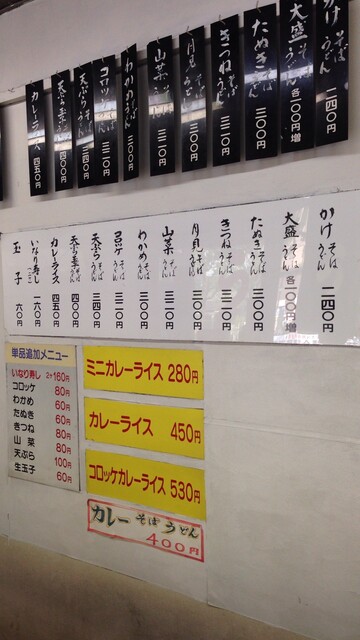 かけ そば うどん 二四〇円
大盛 そば うどん 各一〇〇円増
たぬき そば うどん 三〇〇円
きつね そば うどん 三二〇円
月見 そば うどん 三〇〇円
山菜 そば うどん 三二〇円
わかめ そば うどん 三〇〇円
コロッケ そば うどん 三二〇円
天ぷら そば うどん 三四〇円
四〇〇円
カレーライス 四五〇円
かけ そば うどん 二四〇円
大盛 そば うどん 各一〇〇円増
たぬき そば うどん 三〇〇円
きつね そば うどん 三二〇円
月見 そば うどん 三〇〇円
山菜 そば うどん 三二〇円
わかめ そば うどん 三〇〇円
コロッケ そば うどん 三二〇円
天ぷら そば うどん 三四〇円
そば うどん 四〇〇円
カレーライス 四五〇円
いなり寿し 一六〇円
玉子 六〇円
単品追加メニュー
いなり寿し 2ケ160円
コロッケ 80円
わかめ 60円
たぬき 60円
きつね 80円
山菜 80円
天ぷら 100円
生玉子 60円
ミニカレーライス 280円
カレーライス 450円
コロッケカレーライス 530円
カレー そば うどん
400円